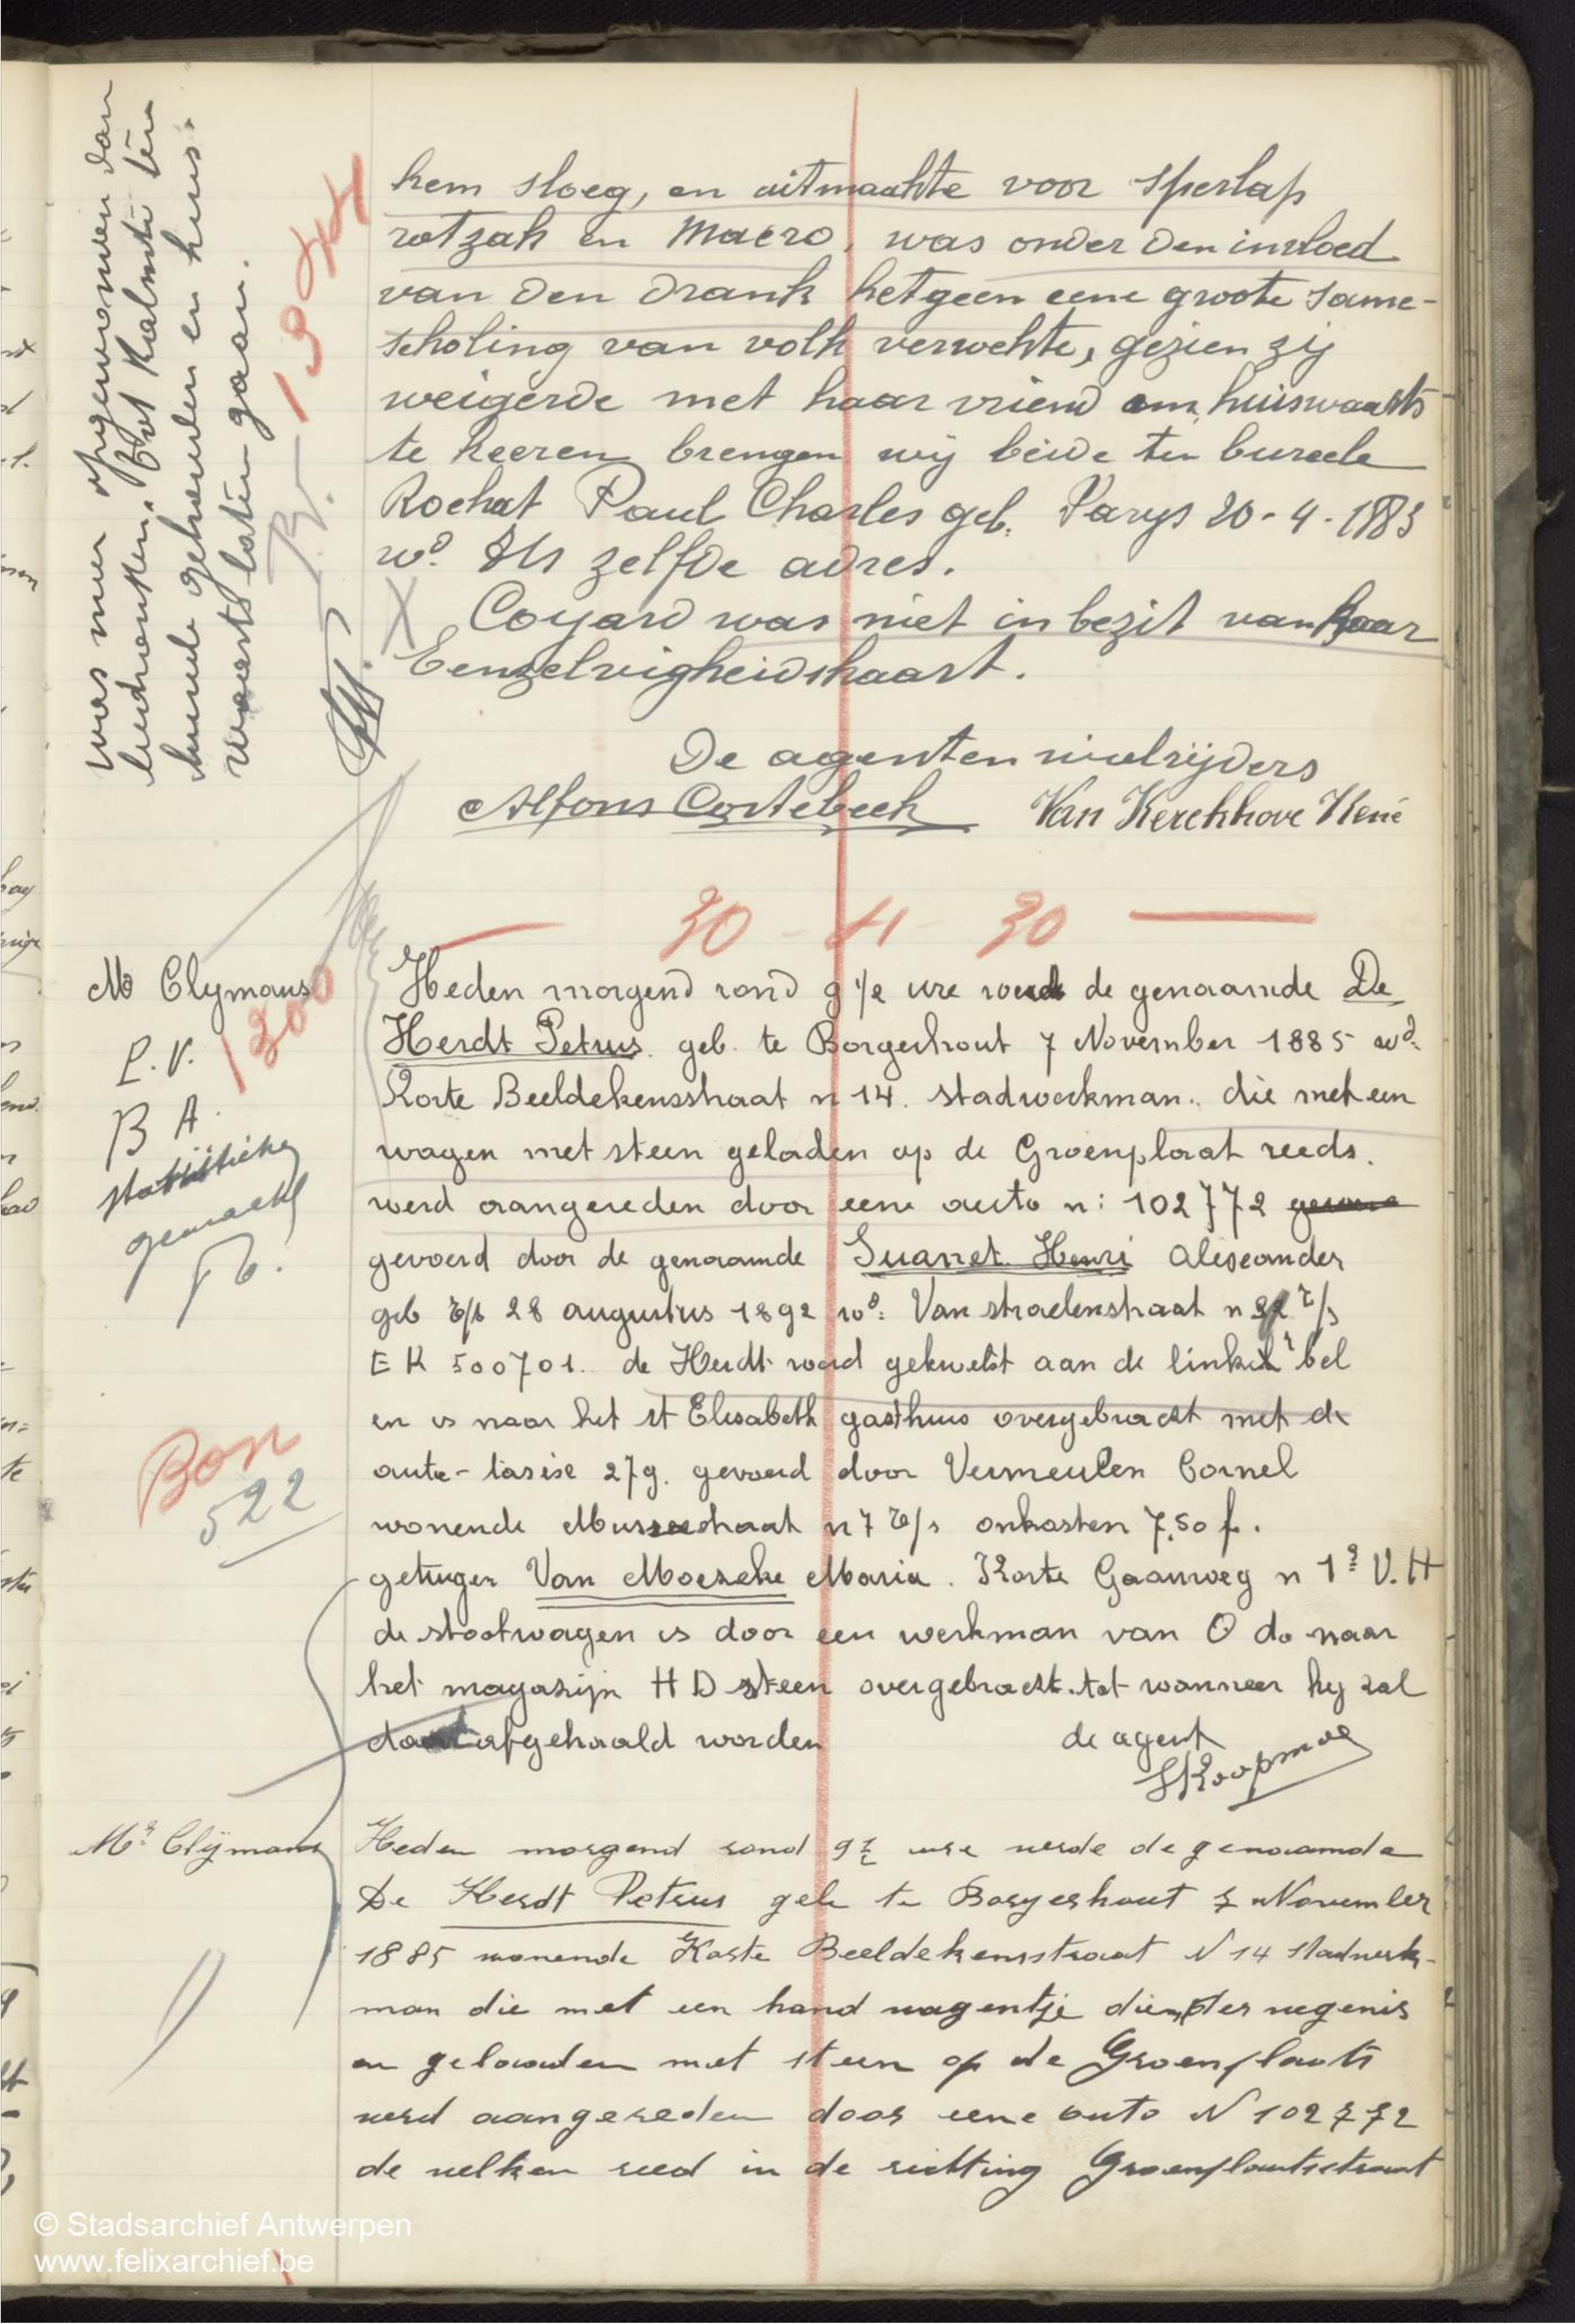 was meer opgewonden dan
bedronken. Eens kalmte ten
bureele gekomen en huis-
waarts laten gaan.
P.V.
hem sloeg, en uitmaakte voor sperlap
rotzak en Macro, was onder den invloed
van den drank hetgeen eene groote same-
scholing van volk verwekte, gezien zij
weigerde met haar vriend om huiswaarts
te keeren brengen wij beide ten bureele
Rochat Paul Charles geb. Parys 20-4-1883
wd. als zelfde adres.
X Coyard was niet in bezit van haar
Eenzelvigheidskaart.
De agenten wielrijders
Alfons Cortebeek Van Kerckhove René
— 30 - 11 - 30 —
Mr Clymans
1300
P.V.
B A.
statistieke
gemaakt
Heden morgend rond 9 1/2 ure werd de genaamde De
Herdt Petrus. geb. te Borgerhout 7 November 1885 wd.
Korte Beeldekensstraat n 14. stadwerkman. die met een
wagen met steen geladen op de Groenplaat reeds.
werd aangereden door eene auto n: 102772
gevoerd door de genaamde Suanet Henri Alexander
geb t/s 28 augustus 1892 wd: Van straelenstraat n t/s
E K 500701. de Herdt werd gekwetst aan de linker bel
en is naar het st Elisabeth gasthuis overgebracht met de
auto-taxise 279. gevoerd door Vermeulen Cornel
wonende straat n 7 t/s onkosten 7,50 f.
Bon
522
getuigen Van Moeseke Maria. Korte Gaanweg n 1 V.H
de stootwagen is door een werkman van O do naar
het magazijn H D steen overgebracht. tot wanneer hy zal
afgehaald worden
de agent
Koopman
Mr Clijmans
Heden morgend rond 9½ ure werde de genaamde
De Herdt Petrus geb te Borgerhout 7 November
1885 wonende Korte Beeldekensstraat N 14 stadwerk-
man die met een hand wagentje dienster wegenis
en gelaaden met steen op de Groenplaats
werd aangereden door eene auto N 102772
de welken reed in de richting Groenplaatsstraat
© Stadsarchief Antwerpen
www.felixarchief.be